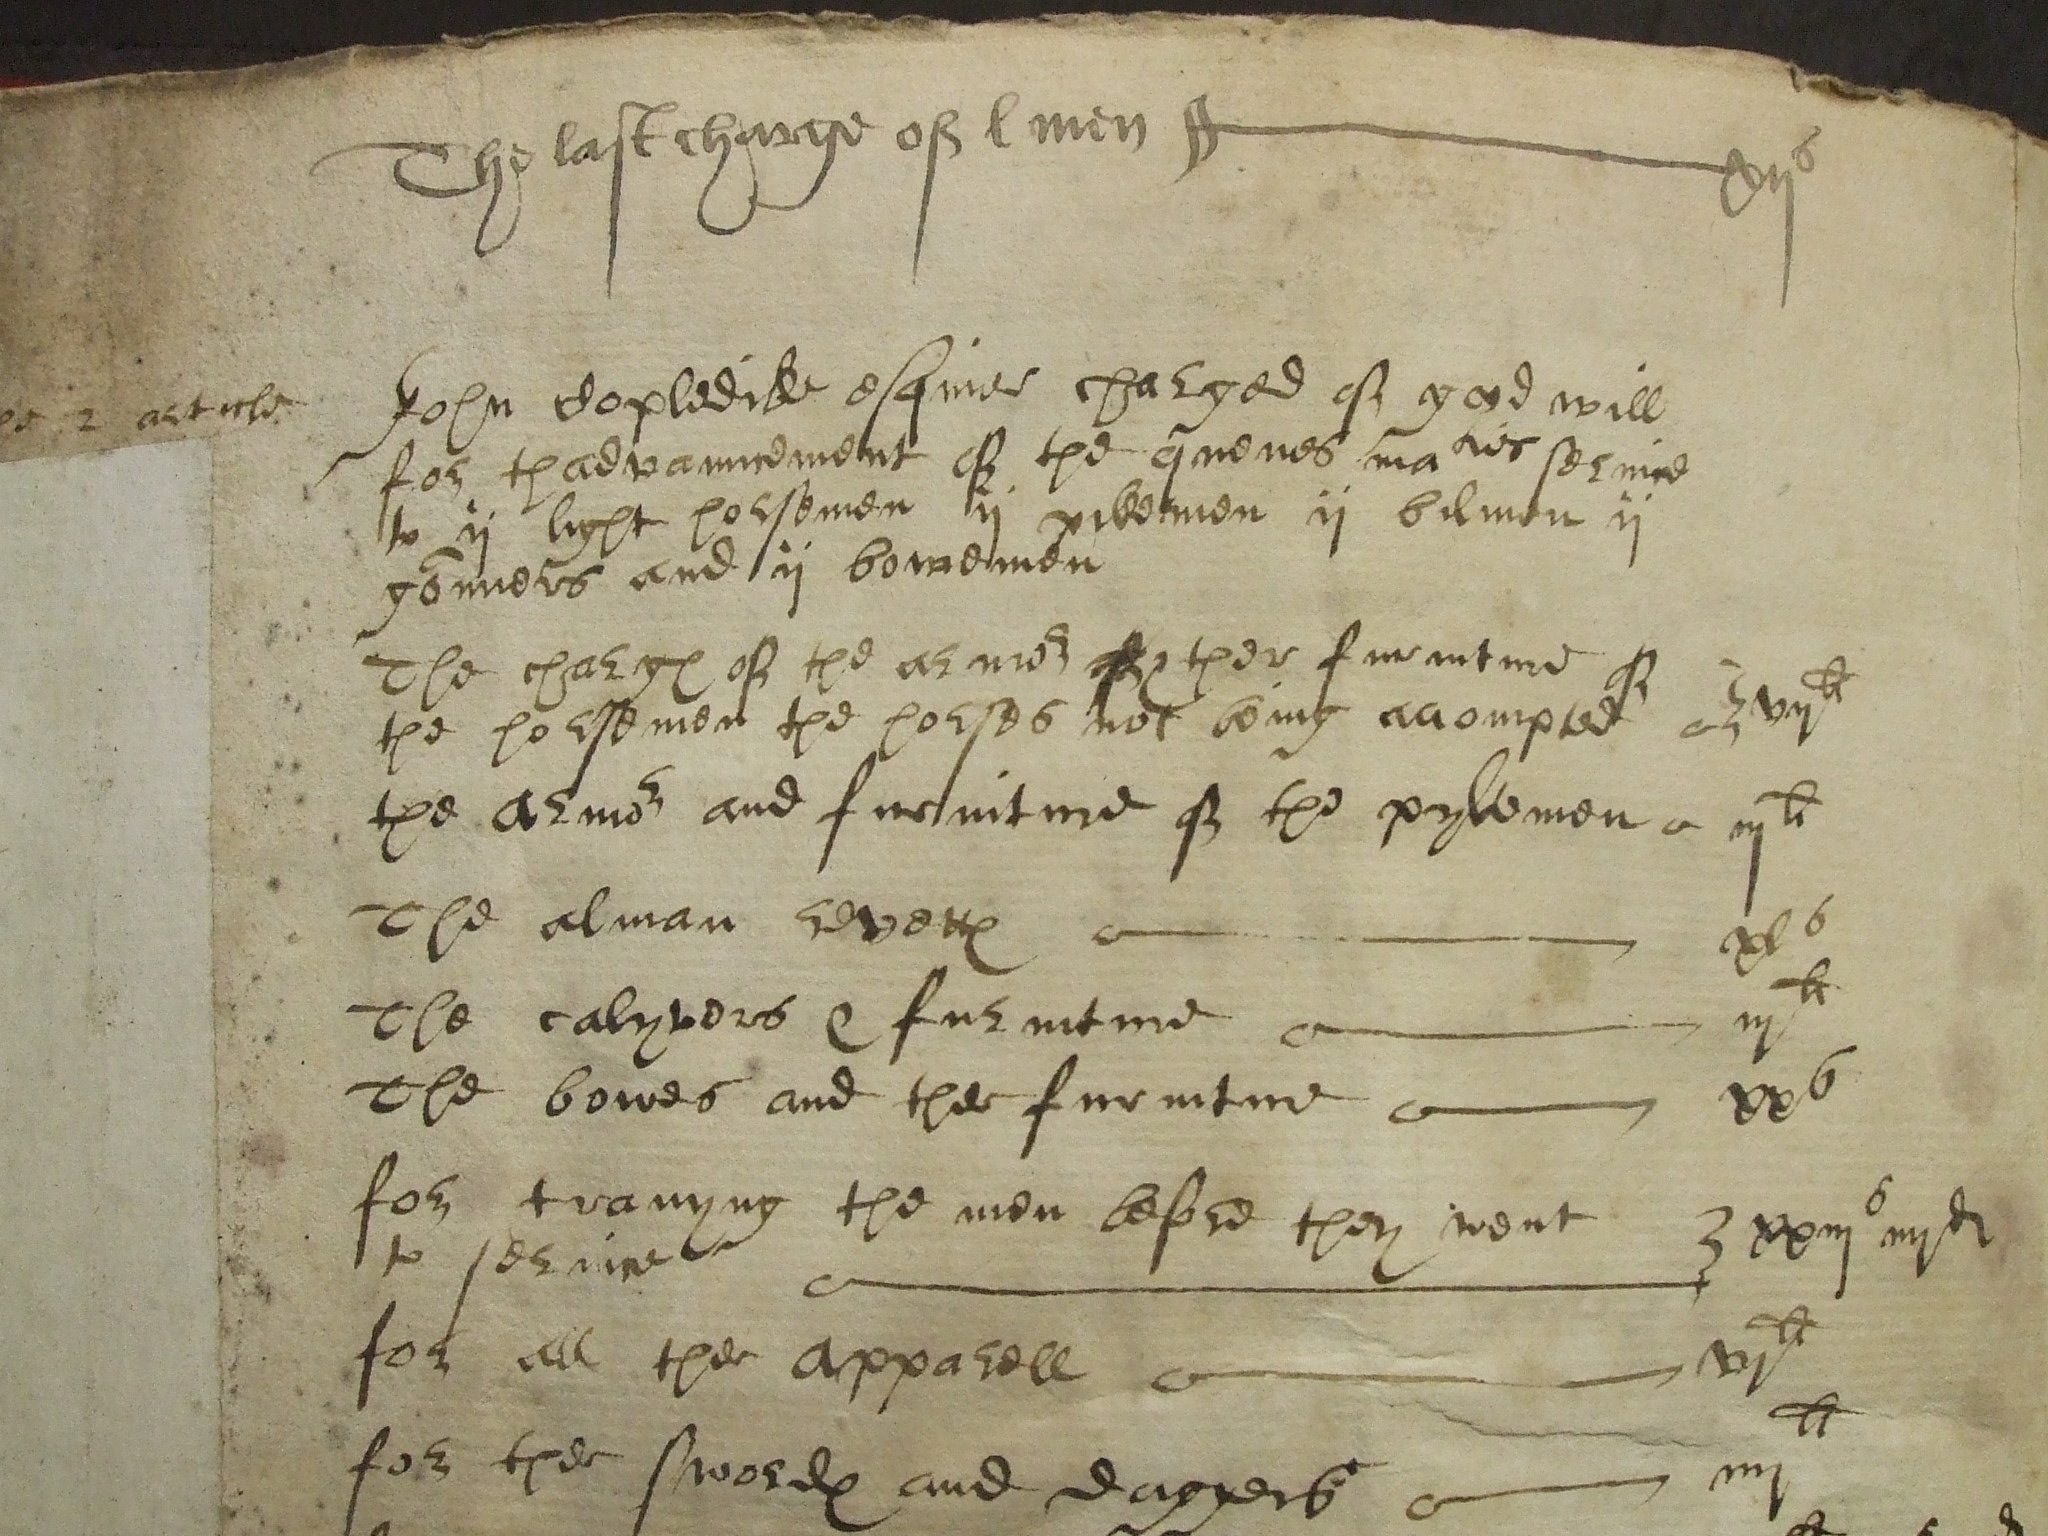 The last charge of l men xijs
2 article
John Copledike esquier charged of good will
for thadvauncement of the quenes maties service
to ij light horsemen ij pikemen ij bilmen ij
gonners and ij bowemen
The charge of the armor & other furniture of
the horsemen the horses not being accompted vijli
the armor and furniture of the pykemen iijli
The alman revettes xls
The calyvers & furniture iijli
The bowes and ther furniture xxs
for traynyng the men before they went xxiijs iiijd
to service
for all ther apparell vjli
for ther swordes and daggers iiijli